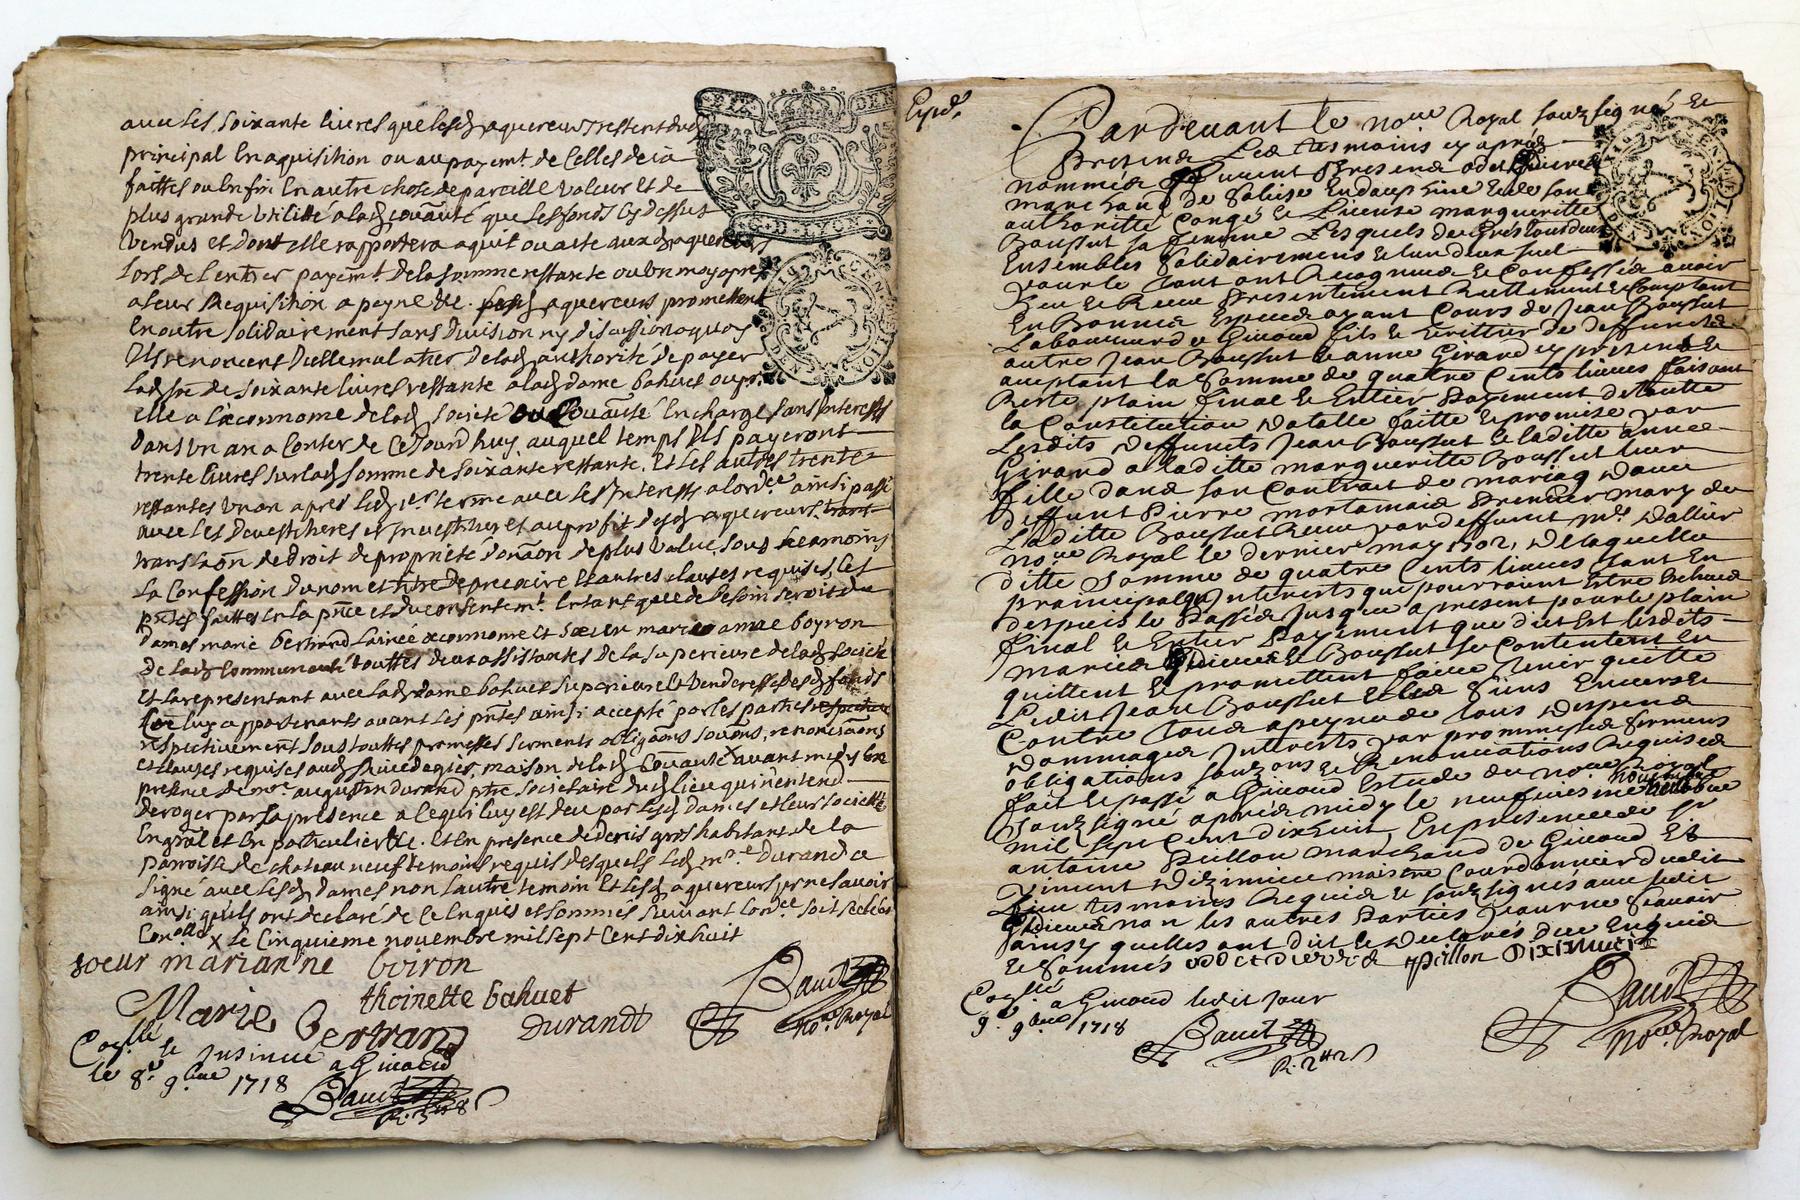 avec les soixante livres que lesd aquereurs restent du
principal en aquisition ou au payemt. de celles deja
faittes ou enfin en autre chose de pareille valeur et de
plus grande utilitté a lad couaūté que les fonds cy dessus
vendus et dont elle rapportera aquit ou acte auxd aquereurs
lors de l'entier payemt. de la somme restante ou un moy apres
a leur requisition a peyne &c. lesd aquereurs promettent
en outre solidairement sans division ny discussion a quoy
ils renoncent de lad authorité de payer
lad sme de soixante livres restante a lad dame bahuet ou pr.
elle a l'œconnome de lad société ou couaūté en charge sans interests
dans un an a conter de ce jourd'huy auquel temps ils payeront
trente livres sur lad somme de soixante restante, et les autres trente
restantes un an apres led 1er terme avec les interests a lordce ainsi passé
avec les devestitures et investitures et au profit desd aquereurs
translaōn de droit de proprieté donāon de plus value, sous neamoins
la confession du nom et titre de precaire et autres clauses requises, les
pntes faittes en la pnce et du consentemt. entant que de besoin seroit de
dames marie bertrand l'ainée œconnome et sœur marie anne boyron
de lad communauté touttes deux assistantes de la superieure de lad société
et la representant avec lad dame bahuet superieure et venderesse desd fonds
luy appartenants avant les pntes ainsi accepté par les parties
respectivement sous touttes promesses serments obligāons soūons, renonciāons
et clauses requises maison de lad couaūté x avant midy en
presence de mre. augustin durand ptre societaire dud lieu qui n'entend
deroger par sa presence a ce qui luy est deu par lesd dames et leur societté
en gnāl et en particulier &c. et en presence de denis gros habitant de la
parroisse de chateauneuf temoins requis desquels led mre. durand a
signé avec lesd dames non l'autre temoin et lesd aquereurs pr ne savoir
ainsi qu'ils ont declaré de ce enquis et sommés suivant l'ordce
x le cinquieme novembre mil sept cent dix huit
soeur marianne boiron
thoinette bahuet
Marie Bertrand
Durandt
Baudt
nore. Royal
Coāllé &
insinué a Givord
le 8e 9bre 1718
Baudt
Expdé.
Pardevant le nore Royal souzsigné &
presend les tesmoins cy aprés
nommés furent presend
marchand de en dauphiné & de son
authoritté congé & license margueritte
Boussut sa femme lesquels de gré
ensembles solidairement & lun deux seul
pour le tout ont recognus & confessés avoir
heu & receu presentement reellement & comptant
en bonnes especes ayant cours de Jean Boussut
laboureur de Givord fils & heritier de deffuncts
autre Jean Boussut & anne Girard cy present &
acceptant la somme de quatre cents livres faisant
reste plain final & entier payement de toutte
la constitution dotalle faitte & promise par
lesdits deffuncts Jean Boussut & laditte anne
Girard a laditte margueritte Boussut leur
fille dans son contrait de mariag davec
deffunt pierre mortamais premier mary de
laditte Boussut receu par deffunct me. Dallier
nore Royal le dernier may 1702, de laquelle
ditte somme de quatre cents livres tant en
principal qu'interests que pourroient estre escheus
despuis le passé jusques a present pour le plain
final & entier payement que dit est lesdits
mariés & Boussut se contentent en
quittent & promettent faire tenir quitte
ledit Jean Boussut & les siens envers &
contre tous a peyne de tous despens
dommages interests par prommesses sermens
obligations souzōns & renonciations requises
fait & passé a Givord estude du nore royal
souzsigné aprés midy le neufviesme novembre
mil sept cent dix huit, en presence de sr
antoine pillon marchand de Givord &
viment dizimieu maistre courdonnier dudit
lieu tesmoins requis & souzsignés avec ledit
non les autres parties pour ne scavoir
ainsy quelles ont dit & declarés de ce enquis
& sommés
pillon Diximieu
Coāllé
a Givord ledit jour
9e 9bre 1718
Baudt
Baudt
nore royal